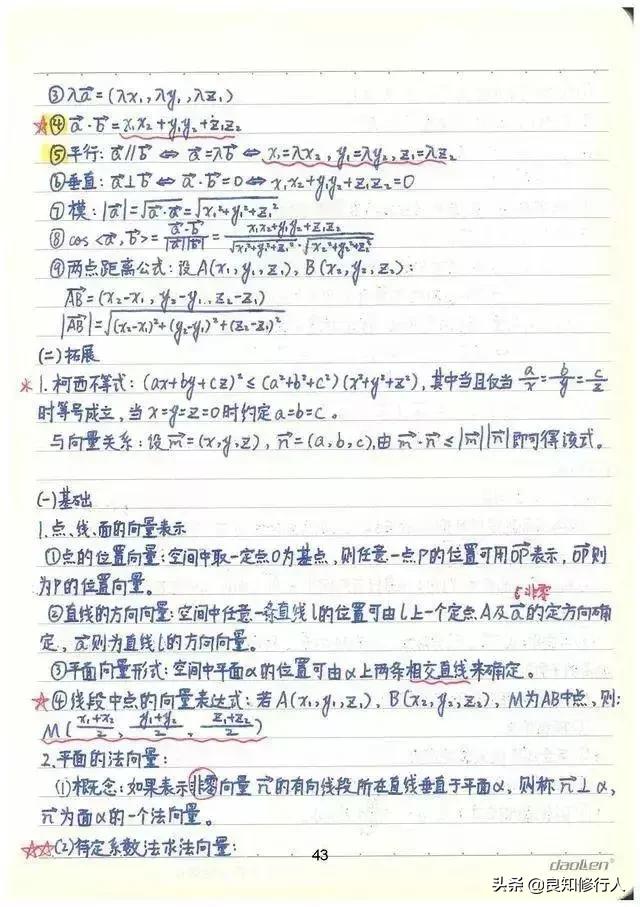 ③λa⃗=(λx₁,λy₁,λz₁)
☆④a⃗·b⃗=x₁x₂+y₁y₂+z₁z₂
⑤平行:a⃗∥b⃗⇔a⃗=λb⃗⇔x₁=λx₂,y₁=λy₂,z₁=λz₂
⑥垂直:a⃗⊥b⃗⇔a⃗·b⃗=0⇔x₁x₂+y₁y₂+z₁z₂=0
⑦模:|a⃗|=√(a⃗·a⃗)=√(x₁²+y₁²+z₁²)
⑧cos<a⃗,b⃗>=(a⃗·b⃗)/(|a⃗||b⃗|)=(x₁x₂+y₁y₂+z₁z₂)/(√(x₁²+y₁²+z₁²)·√(x₂²+y₂²+z₂²))
⑨两点距离公式:设A(x₁,y₁,z₁),B(x₂,y₂,z₂):
AB⃗=(x₂-x₁,y₂-y₁,z₂-z₁)
|AB⃗|=√((x₂-x₁)²+(y₂-y₁)²+(z₂-z₁)²)
(二)拓展
*1.柯西不等式:(ax+by+cz)²≤(a²+b²+c²)(x²+y²+z²),其中当且仅当a/x=b/y=c/z
时等号成立,当x=y=z=0时约定a=b=c。
与向量关系:设m⃗=(x,y,z),n⃗=(a,b,c),由m⃗·n⃗≤|m⃗||n⃗|即可得该式。
(一)基础
1.点、线、面的向量表示
①点的位置向量:空间中取一定点O为基点,则任意一点P的位置可用OP⃗表示,OP⃗则
为P的位置向量。
非零
②直线的方向向量:空间中任意一条直线l的位置可由l上一个定点A及a⃗的定方向确
定,a⃗则为直线l的方向向量。
③平面向量形式:空间中平面α的位置可由α上两条相交直线来确定。
☆④线段中点的向量表达式:若A(x₁,y₁,z₁),B(x₂,y₂,z₂),M为AB中点,则:
M((x₁+x₂)/2,(y₁+y₂)/2,(z₁+z₂)/2)
2.平面的法向量:
(1)概念:如果表示非零向量n⃗的有向线段所在直线垂直于平面α,则称n⃗⊥α,
n⃗为面α的一个法向量。
☆☆(2)待定系数法求法向量:
43
daolien
头条@良知修行人